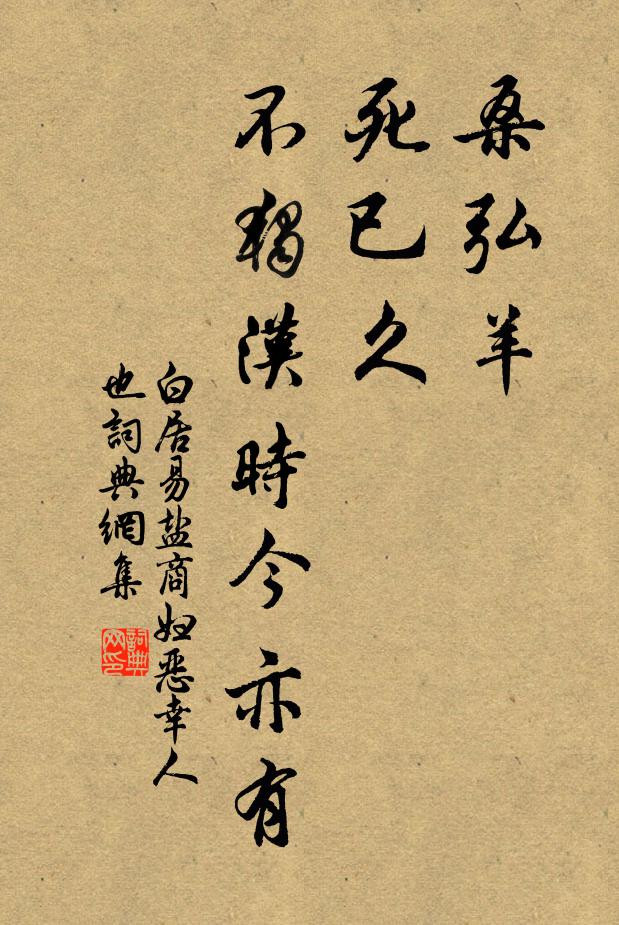 桑弘羊
死已久
不獨漢時今亦有
白居易盐商妇惡幸人
也詞典網集
詞典网印